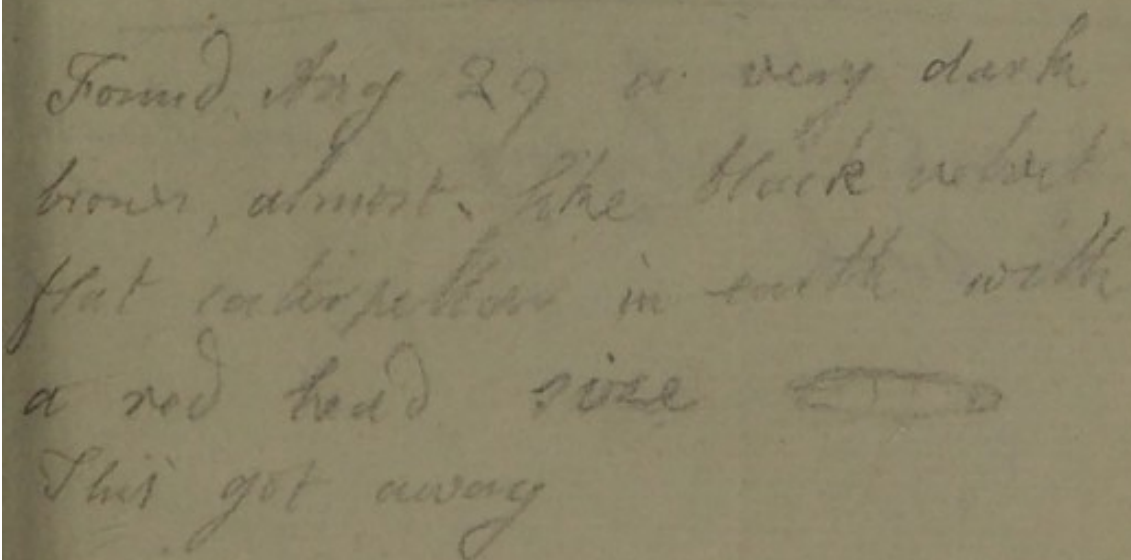 Found Aug 29 a very dark
brown, almost like black velvet
flat caterpillar in earth with
a red head size
This got away